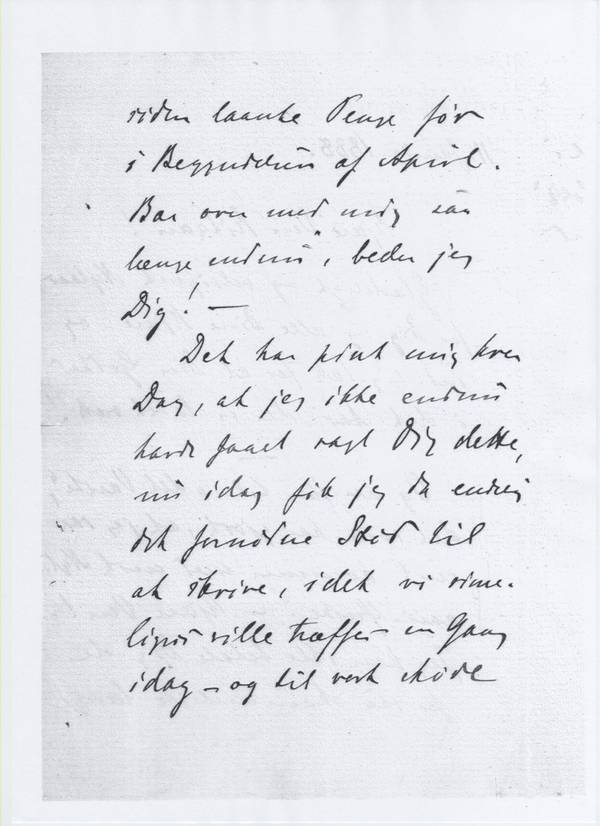 siden laante Penge før
i Begyndelsen af April.
Bær over med mig saa
længe endnu, beder jeg
Dig! —
Det har pint mig hver
Dag, at jeg ikke endnu
havde faaet sagt Dig dette,
nu idag fik jeg da endelig
det fornødne Stød til
at skrive, idet vi rime-
ligvis ville træffes en Gang
idag — og til